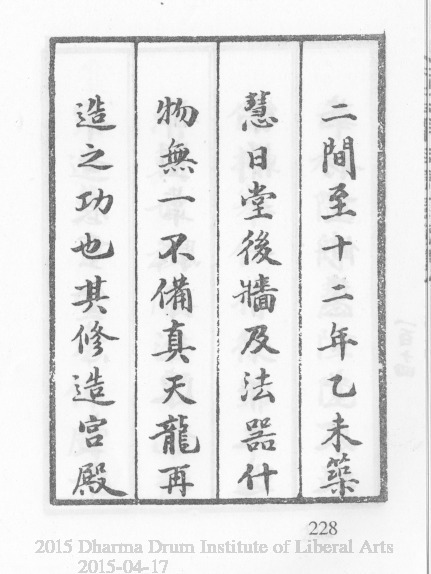 二間至十二年乙未築
慧日堂後牆及法器什
物無一不備真天龍再
造之功也其修造宮殿
228
2015 Dharma Drum Institute of Liberal Arts
2015-04-17